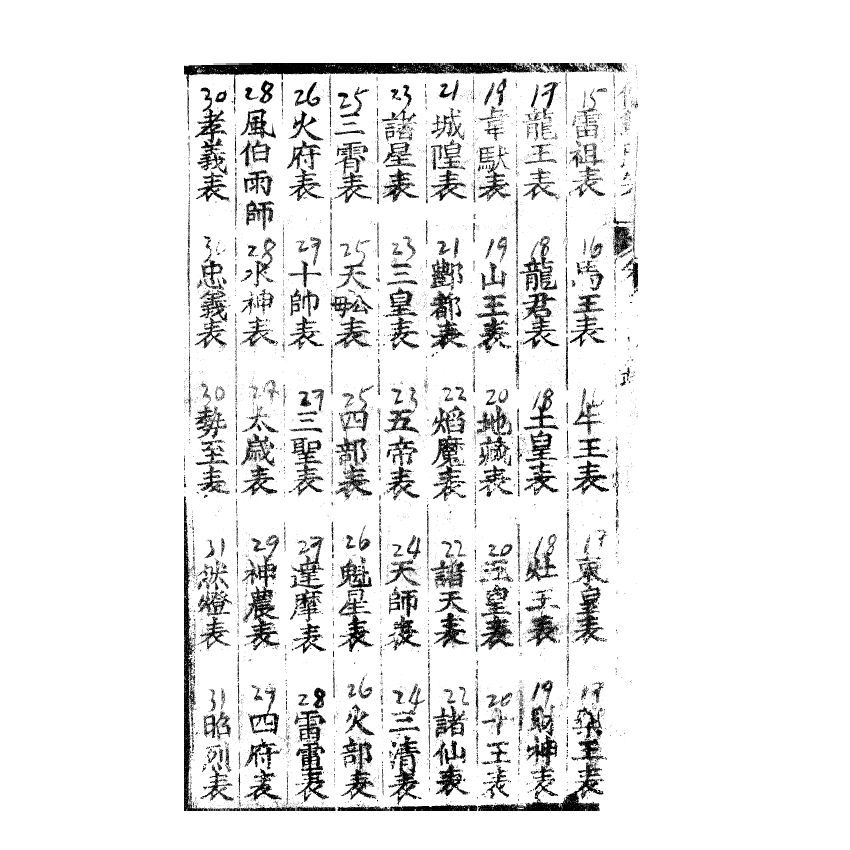 15雷祖表 16馬王表 16牛王表 17東皇表 17王表
17龍王表 18龍君表 18土皇表 18灶王表 19財神表
19韋馱表 19山王表 20地藏表 20玉皇表 20十王表
21城隍表 21酆都表 22焰魔表 22諸天表 22諸仙表
23諸星表 23三皇表 23五帝表 24天師表 24三清表
25三霄表 25天公母表 25四部表 26魁星表 26火部表
26火府表 27十帥表 27三聖表 27達摩表 28雷電表
28風伯雨師 28水神表 29太歲表 29神農表 29四府表
30孝義表 30忠義表 30勢至表 31然燈表 31昭烈表